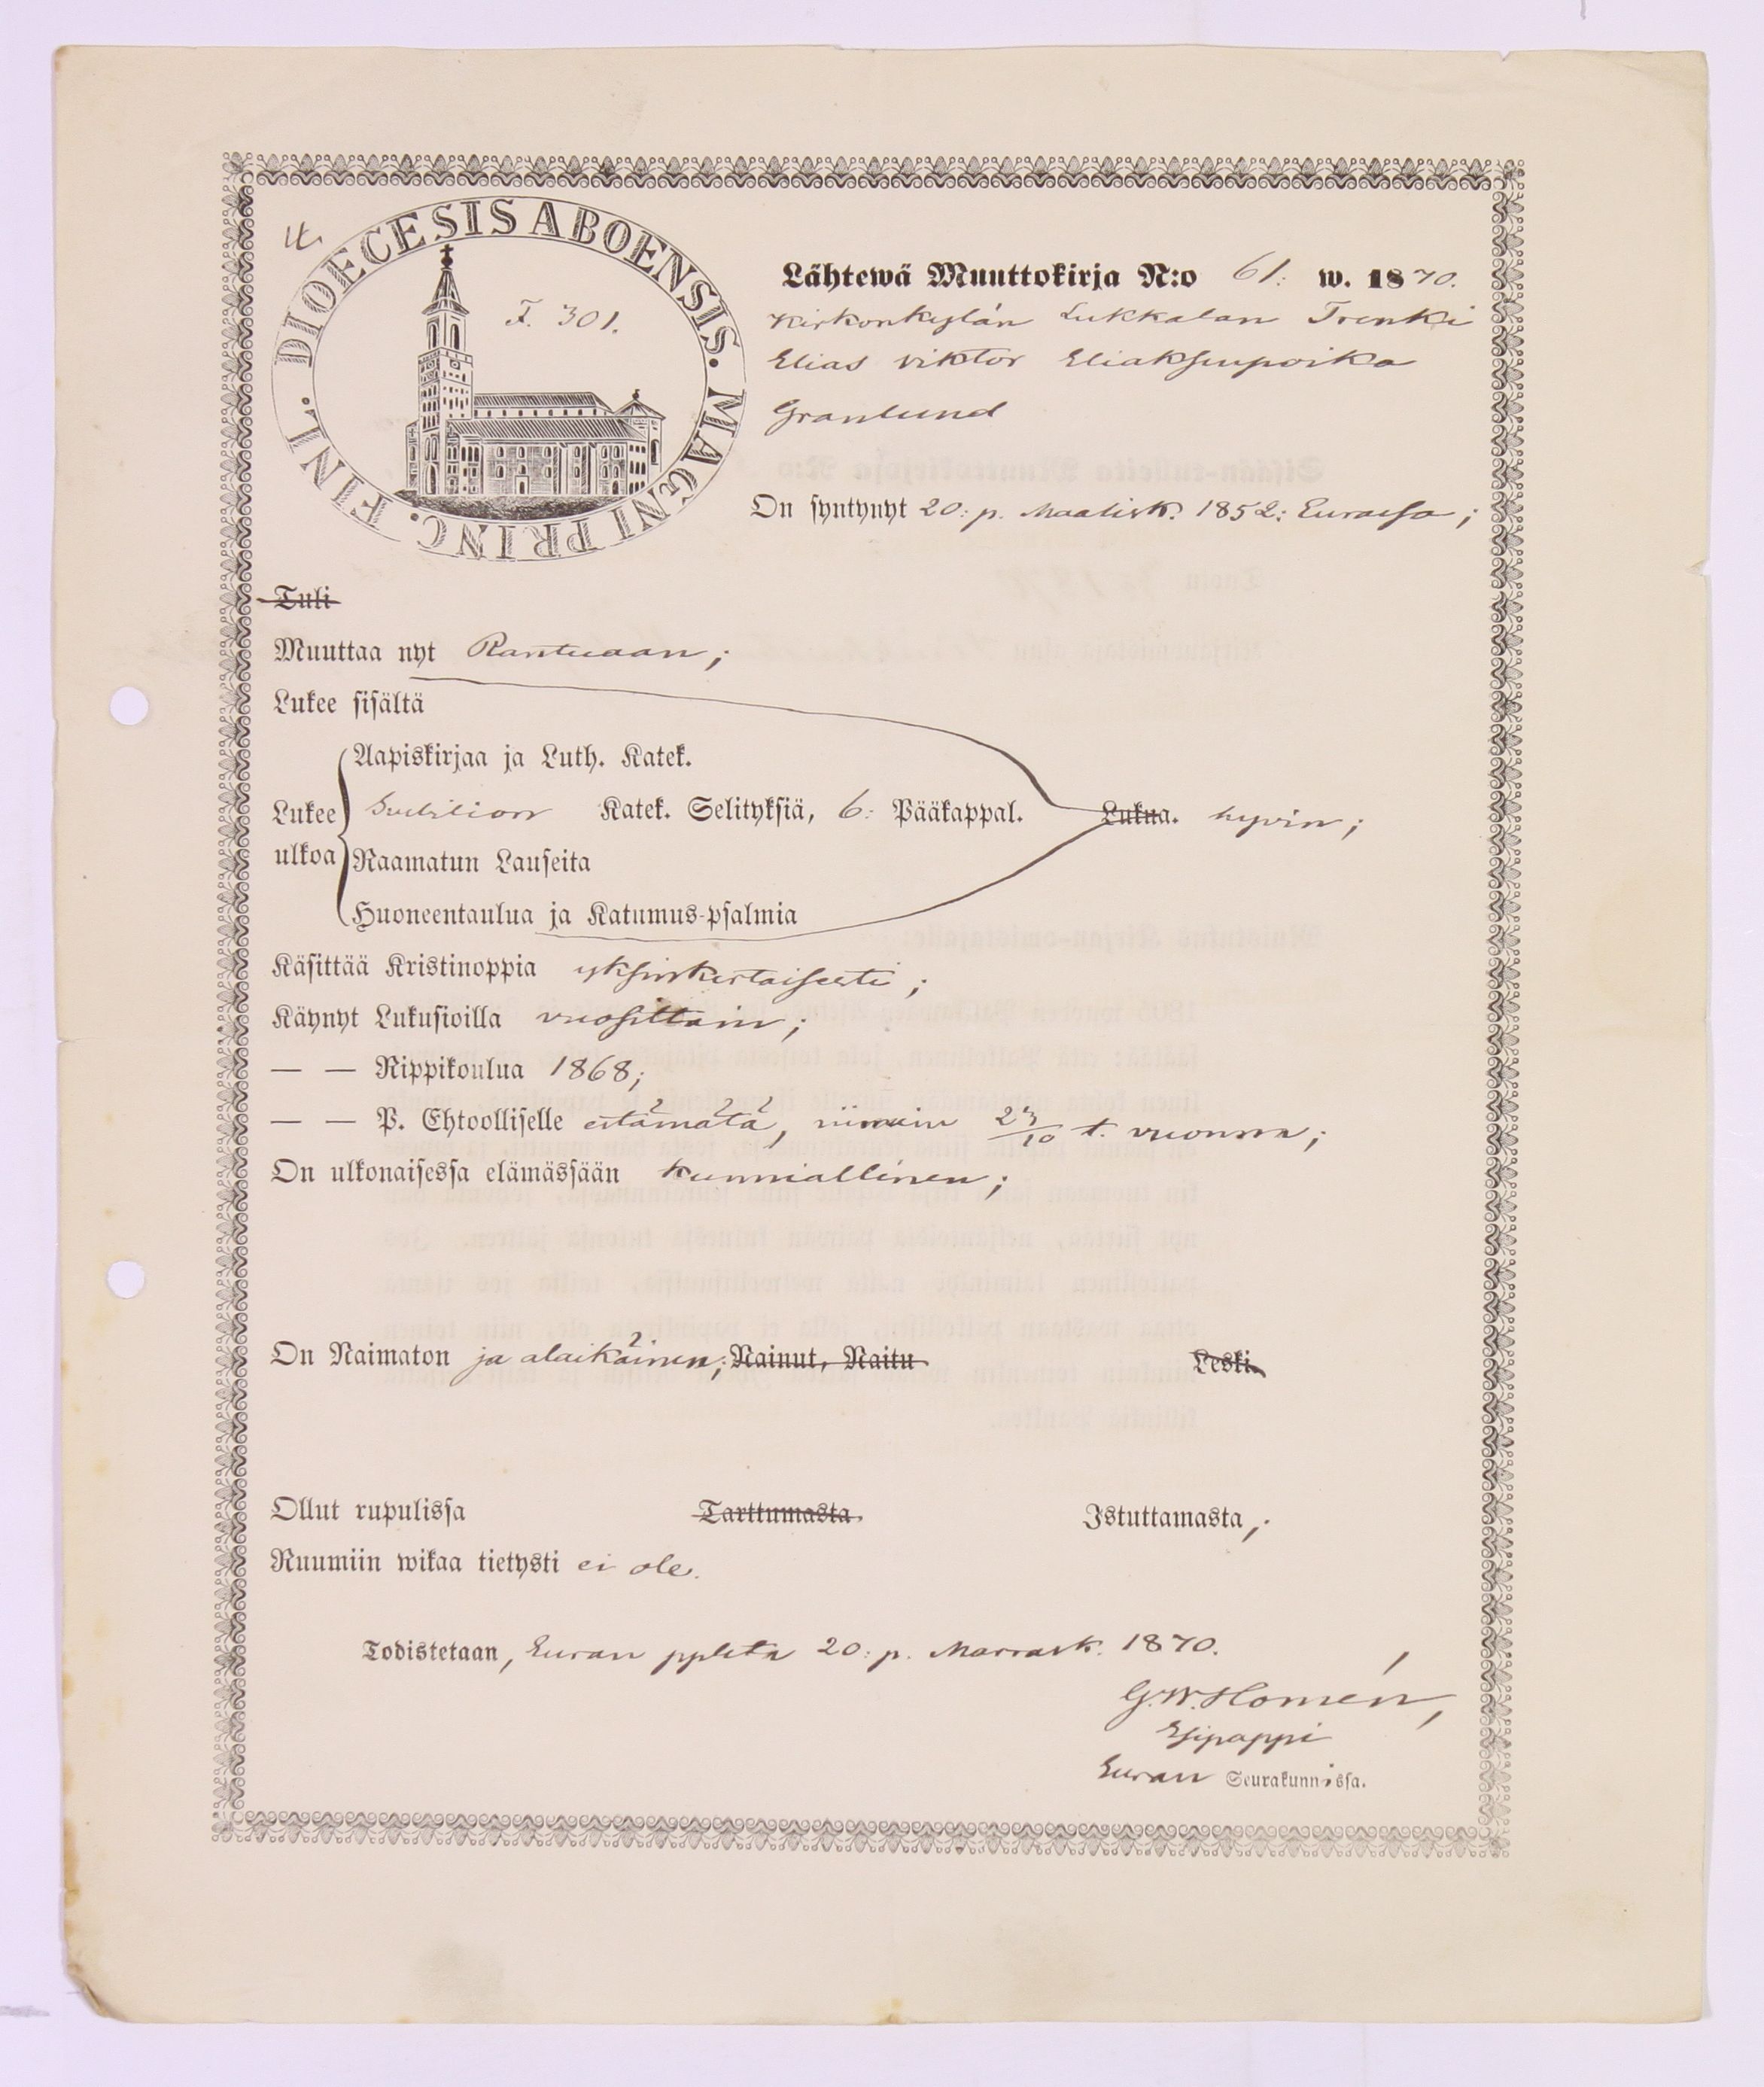 DIOECESIS ABOENSIS. MAGNI PRINC. FINL.
F. 301.
Lähtewä Muuttokirja N:o 61: w. 1870.
Kirkonkylän Lukkalan Trenki
Elias Viktor Eliaksenpoika
Granlund
On syntynyt 20: p. Maalisk. 1852: Eurassa;
Tuli
Muuttaa nyt
Lukee sisältä
Aapiskirjaa ja Luth. Katek.
Lukee ulkoa
Katek. Selityksiä, 6: Pääkappal. Lukua. hyvin;
Raamatun Lauseita
Huoneentaulua ja Katumus-psalmia
Käsittää Kristinoppia yksinkertaisesti;
Käynyt Lukusioilla vuosittain;
— — Rippikoulua 1868;
— — P. Ehtoolliselle estämätä, niinkuin 23/10 t. vuonna;
On ulkonaisessa elämässään kunniallinen;
On Naimaton ja alaikäinen; Nainut, Naitu Leski.
Ollut rupulissa Tarttumasta. Istuttamasta;
Ruumiin wikaa tietysti ei ole.
Todistetaan, Euran 20: p. Marrask. 1870.
G. W. Homén,
Esipappi
Euran Seurakunnissa.